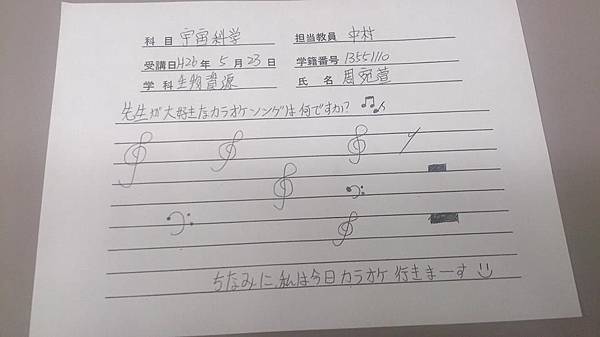 科目 宇宙科学 担当教員 中村
受講日H26年 5月23日 学籍番号 13551110
学科 生物資源 氏名 周宛萱
先生が大好きなカラオケソングは何ですか?
ちなみに、私は今日カラオケ行きまーす